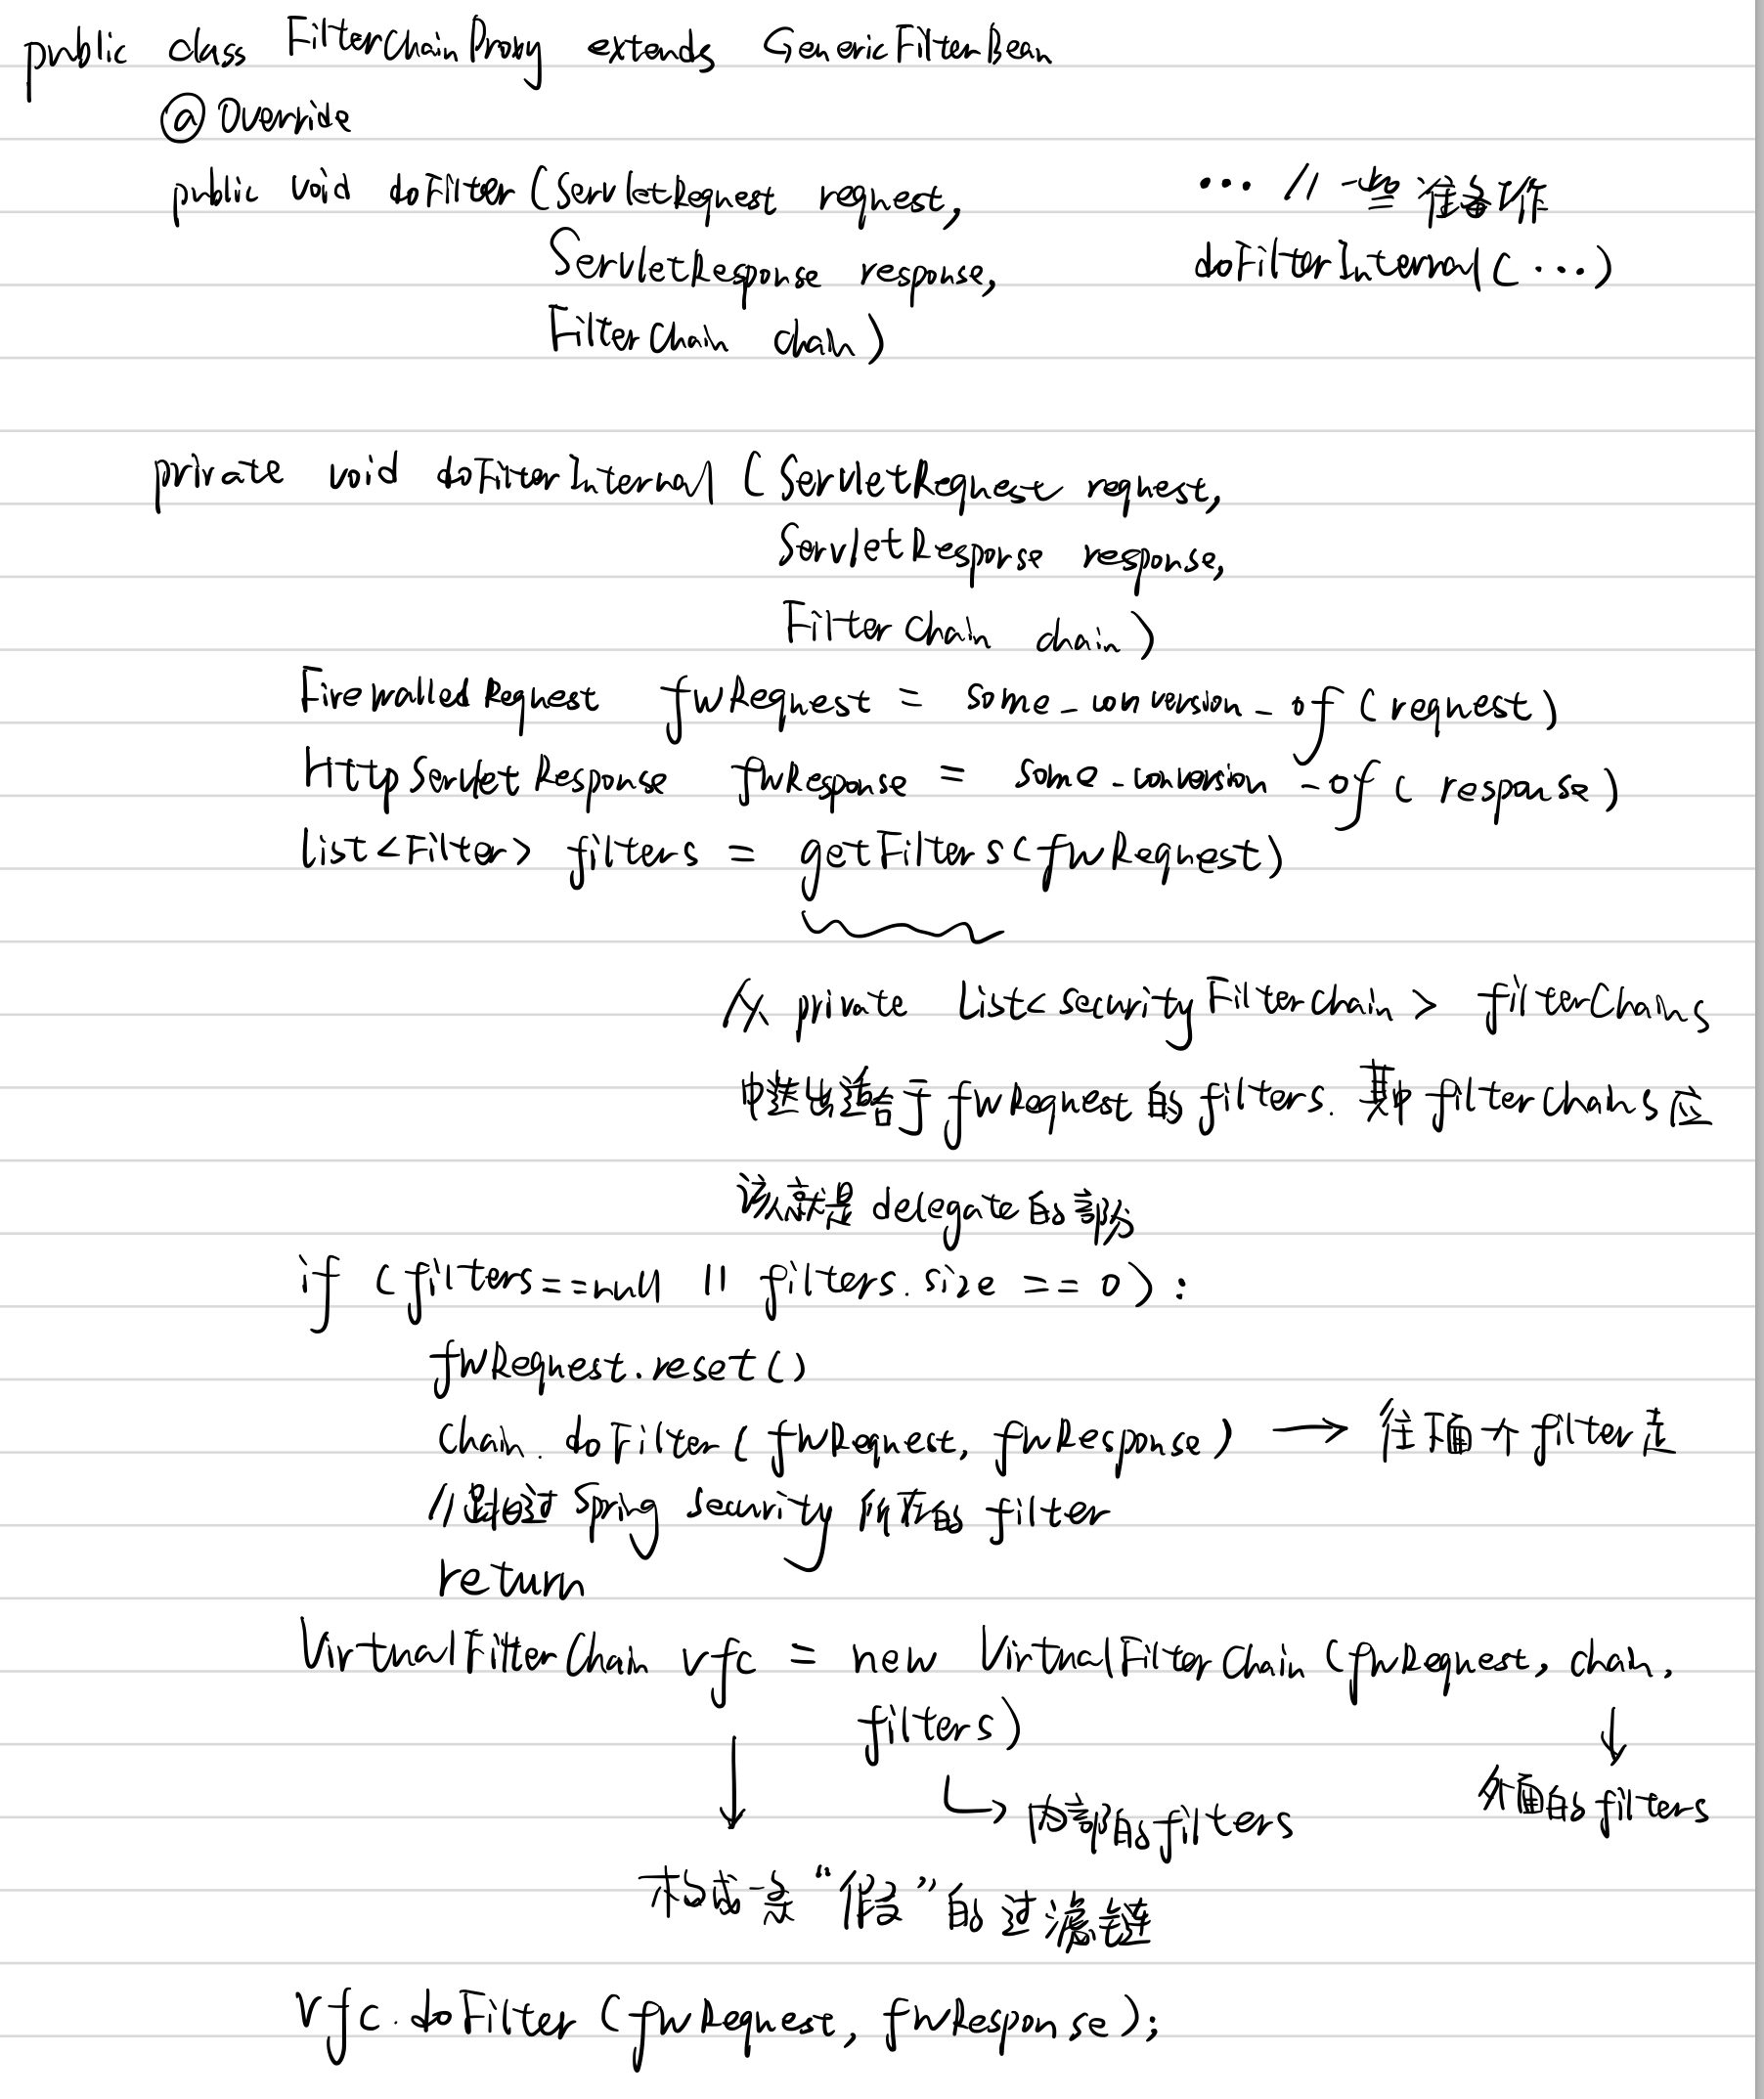 public class FilterChainProxy extends GenericFilterBean
@Override
public void doFilter(ServletRequest request,
ServletResponse response,
FilterChain chain)
... // 一些准备工作
doFilterInternal(...)
private void doFilterInternal (ServletRequest request,
ServletResponse response,
FilterChain chain)
FirewalledRequest fwRequest = some_conversion_of(request)
HttpServletResponse fwResponse = some_conversion_of(response)
List<Filter> filters = getFilters(fwRequest)
从 private List<SecurityFilterChain> filterChains
中选出适合于 fwRequest 的 filters. 其中 filterChains 应
该就是 delegate 的部分
if (filters==null || filters.size == 0):
fwRequest.reset()
chain.doFilter(fwRequest, fwResponse) → 往下面一个 filter 走
//跳过 Spring Security 所在的 filter
return
VirtualFilterChain vfc = new VirtualFilterChain (fwRequest, chain,
filters)
↓ 外面的 filters
↳ 内部的 filters
↓ 构成一条“假”的过滤链
vfc.doFilter (fwRequest, fwResponse);